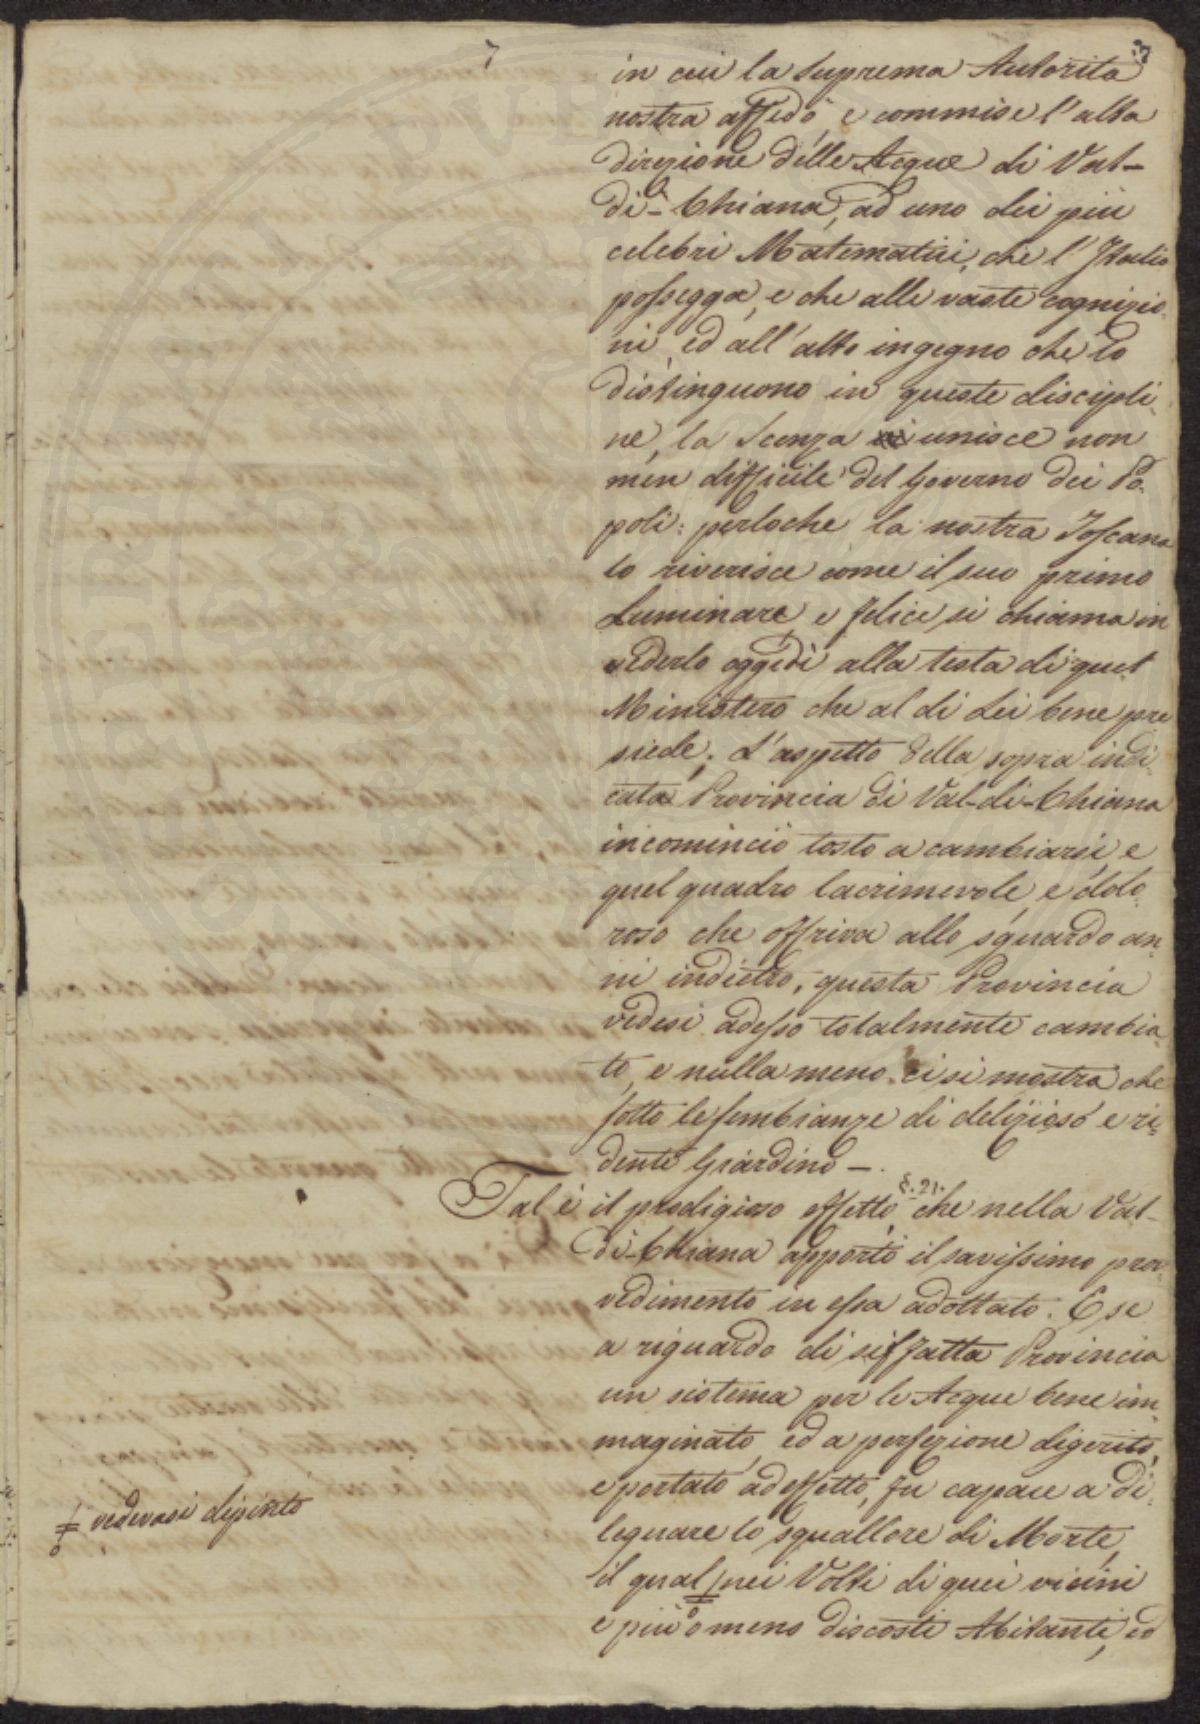 in cui la Suprema Autorità
nostra affidò, e commise l'alta
direzione delle Acque di Val-
di-Chiana, ad uno dei più
celebri Matematici, che l'Italia
possegga, e che alle vaste cognizio-
ni, ed all'alto ingegno che lo
distinguono in queste discipli-
ne, la Scenza unisce non
men difficile del Governo dei Po-
poli: perloche la nostra Toscana
lo riverisce come il suo primo
Luminare, e felice si chiama in
vederlo oggedì alla testa di quel
Ministero che al di Lei bene pre
siede. L'aspetto della sopra indi-
cata Provincia di Val-di-Chiana
incominciò tosto a cambiarsi, e
quel quadro lacrimevole, e dolo-
roso che offriva allo sguardo an-
ni indietro, questa Provincia
vedesi adesso totalmente cambia-
to, e nulla meno ci si mostra che
sotto le sembianze di delizioso e ri-
dente Giardino -.
§. 21.
Tal è il prodigioso effetto, che nella Val-
di-Chiana apportò il savissimo prov-
vedimento in essa adottato. E se
a riguardo di siffatta Provincia
un sistema per le Acque bene im-
maginato, ed a perfezione digerito,
e portato ad effetto, fu capace a di-
leguare lo squallore di Morte,
il qual nei Volti di quei vicini
e più o meno discosti Abitanti, ed
vedevasi dipinto